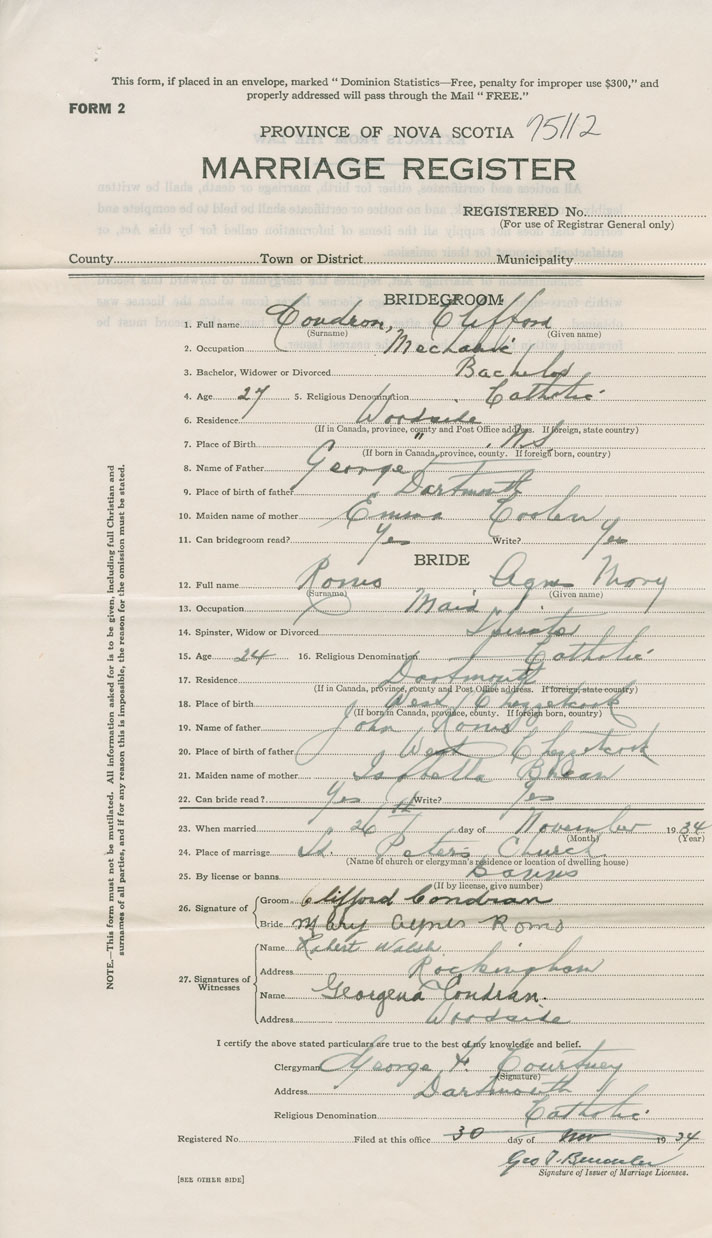 This form, if placed in an envelope, marked “ Dominion Statistics—Free, penalty for improper use $300,” and
properly addressed will pass through the Mail “ FREE.”
FORM 2
PROVINCE OF NOVA SCOTIA 75112
MARRIAGE REGISTER
REGISTERED No.
(For use of Registrar General only)
County Town or District Municipality
BRIDEGROOM
1. Full name Condron, Clifford
(Surname) (Given name)
2. Occupation Mechanic
3. Bachelor, Widower or Divorced Bachelor
4. Age 27 5. Religious Denomination Catholic
6. Residence Woodside
(If in Canada, province, county and Post Office address. If foreign, state country)
7. Place of Birth " N.S.
(If born in Canada, province, county. If foreign born, country)
8. Name of Father George
9. Place of birth of father Dartmouth
10. Maiden name of mother Emma Coolen
11. Can bridegroom read? Yes Write? Yes
BRIDE
12. Full name Romo Agnes Mary
(Surname) (Given name)
13. Occupation Maid
14. Spinster, Widow or Divorced Spinster
15. Age 24 16. Religious Denomination Catholic
17. Residence Dartmouth
(If in Canada, province, county and Post Office address. If foreign, state country)
18. Place of birth West Chezzetcook
(If born in Canada, province, county. If foreign born, country)
19. Name of father John Romo
20. Place of birth of father West Chezzetcook
21. Maiden name of mother Isabella
22. Can bride read? Yes Write? Yes
23. When married 26th day of November 1934
(Month) (Year)
24. Place of marriage St. Peter's Church
(Name of church or clergyman's residence or location of dwelling house)
25. By license or banns Banns
(If by license, give number)
26. Signature of Groom Clifford Condran
Bride Mary Agnes Romo
27. Signatures of Witnesses Name Robert Walsh
Address Rockingham
Name Georgena Condran.
Address Woodside
I certify the above stated particulars are true to the best of my knowledge and belief.
Clergyman George F. Courtney
(Signature)
Address Dartmouth
Religious Denomination Catholic
Registered No. Filed at this office 30 day of Nov 1934
Geo T.
Signature of Issuer of Marriage Licenses.
[SEE OTHER SIDE]
NOTE.—This form must not be mutilated. All information asked for is to be given, including full Christian and
surnames of all parties, and if for any reason this is impossible, the reason for the omission must be stated.